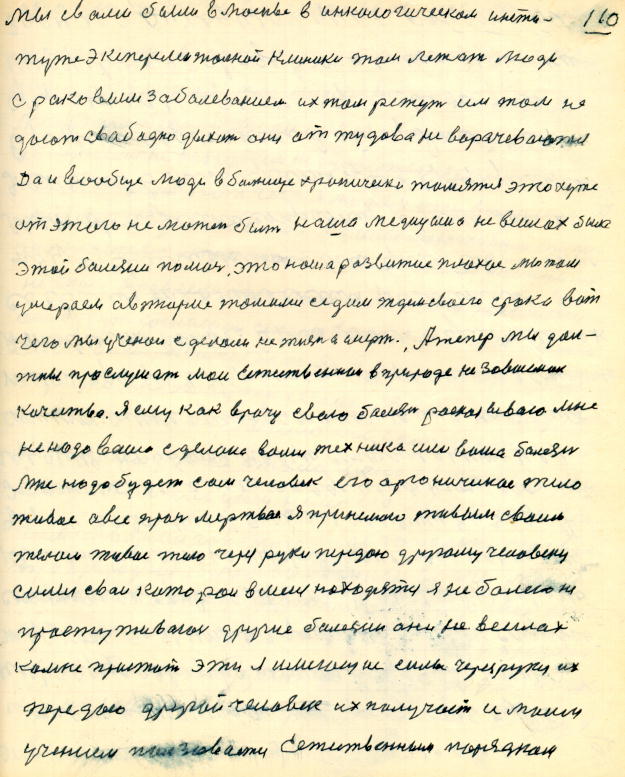 110
Мы с вами были в Москве в инкологическом инсти-
туте Экспереметалной Клиники там лежат люди
с раковым заболеванием их там режут им там не
дают свабадно дыхат они от тудова не ворачеваются
Да и вообще люди в болнице хронически томятся это хуже
от этого не может быт наша медицина не в силах была
этой болезни помоч, это наша развитие плохое мы там
умераем а в тюрме томими седим ждем своего срока вот
чего мы ученои сделали не жизн а смерт. А тепер мы дол-
жны прослушат мои Естественнои в природе не зависимои
качества. Я ему как врачу свою болезн расказиваю мне
не надо ваша сделана вами техника или ваша болезн
Мне надо будет сам человек его арганичикое тело
живое а все проч мертвое я принемаю живым своим
телом живое тело через руки передаю другому человеку
силы сваи каторои в мене находятся я не болею и
простуживаюс другие болезни они не в силах
ка мне пристат эти я имеющие силы через руки их
передаю другой человек их получает и моим
учением ползовается Естественным порядкам